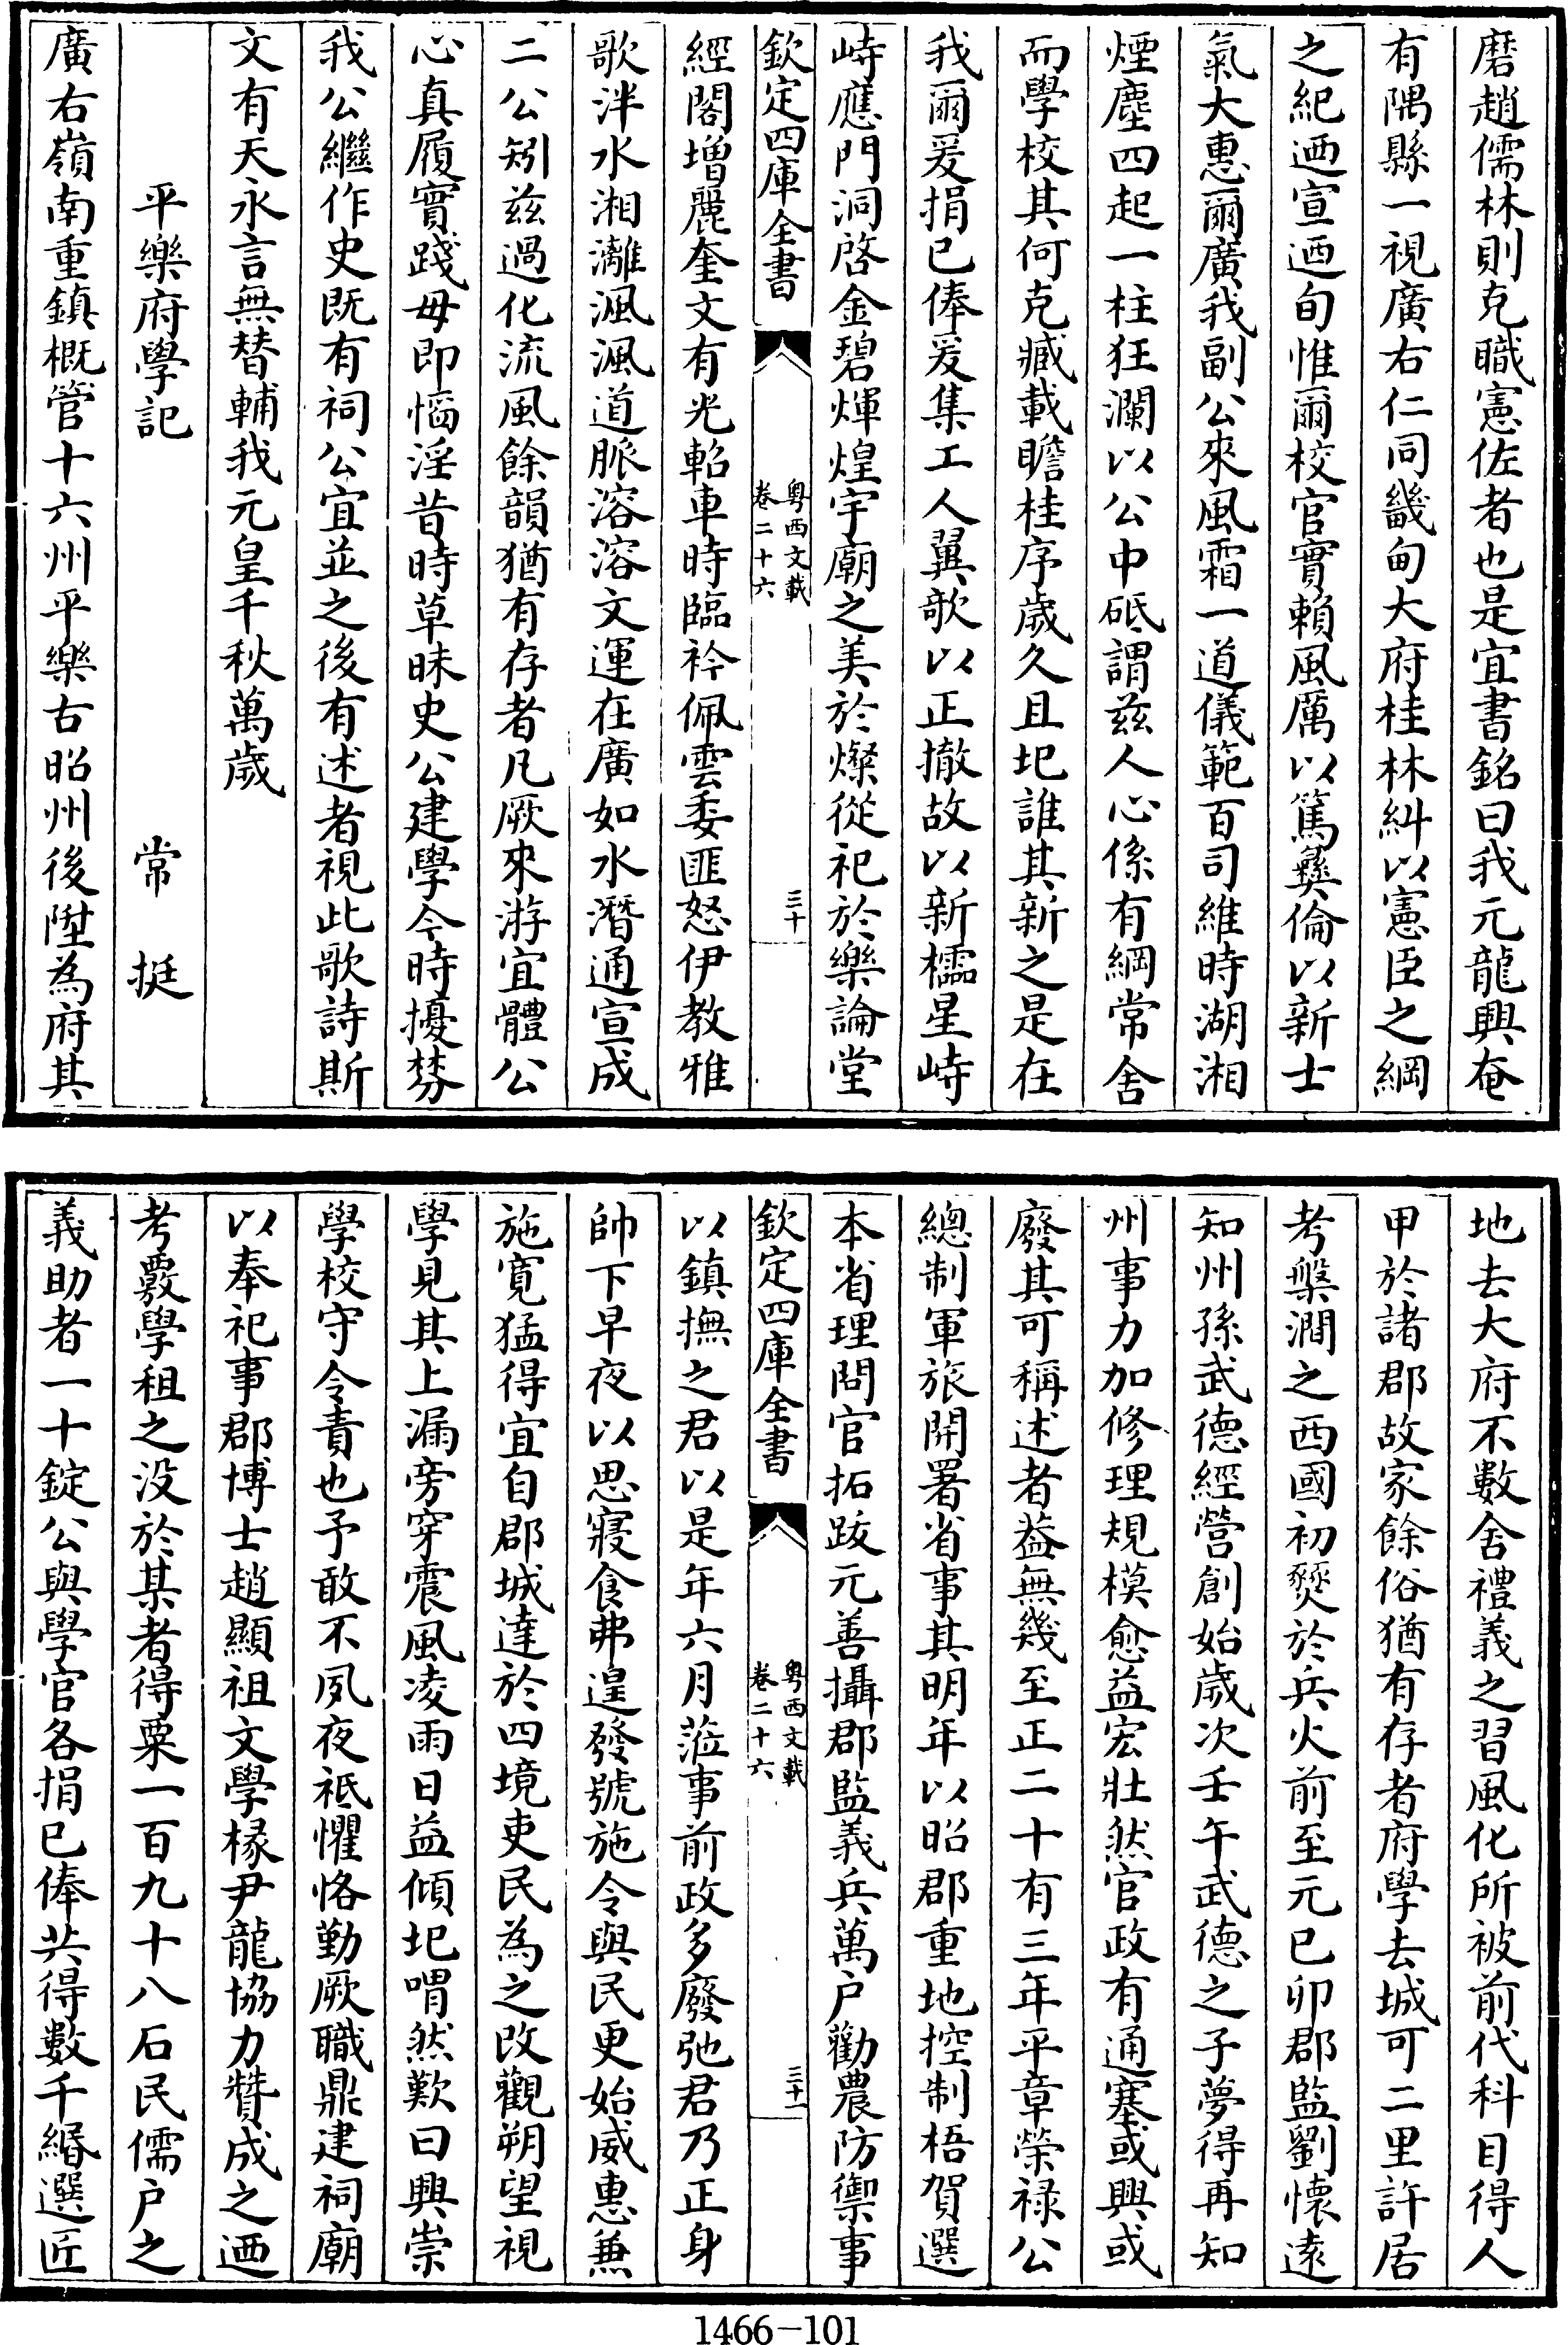 磨趙儒林則克職憲佐者也是宜書銘曰我元龍興奄
有隅縣一視廣右仁同畿甸大府桂林糾以憲臣之綱
之紀迺宣迺旬惟爾校官實賴風厲以篤彝倫以新士
氣大惠爾廣我副公來風霜一道儀範百司維時湖湘
煙塵四起一柱狂瀾以公中砥謂兹人心係有綱常舍
而學校其何克臧載瞻桂序歲久且圮誰其新之是在
我爾爰捐已俸爰集工人翼歌以正撤故以新櫺星峙
峙應門洞啓金碧煇煌宇廟之美於燦從祀於樂論堂
欽定四庫全書 粤西文載卷二十六 三十
經閣增麗奎文有光軺車時臨衿佩雲委匪怒伊教雅
歌泮水湘灕渢渢道脈溶溶文運在廣如水潛通宣成
二公矧兹過化流風餘韻猶有存者凡厥來游宜體公
心真履實踐毋即慆淫昔時草昧史公建學今時擾棼
我公繼作史既有祠公宜並之後有述者視此歌詩斯
文有天永言無替輔我元皇千秋萬歲
平樂府學記 常挺
廣右嶺南重鎮概管十六州平樂古昭州後陞為府其
地去大府不數舍禮義之習風化所被前代科目得人
甲於諸郡故家餘俗猶有存者府學去城可二里許居
考槃澗之西國初燹於兵火前至元已卯郡監劉懷遠
知州孫武德經營創始歲次壬午武德之子夢得再知
州事力加修理規模愈益宏壯然官政有通塞或興或
廢其可稱述者葢無幾至正二十有三年平章榮禄公
總制軍旅開署省事其明年以昭郡重地控制梧賀選
本省理問官拓跋元善攝郡監義兵萬户勸農防禦事
欽定四庫全書 粤西文載卷二十六 三十一
以鎮撫之君以是年六月蒞事前政多廢弛君乃正身
帥下早夜以思寢食弗遑發號施令與民更始威惠兼
施寛猛得宜自郡城達於四境吏民為之改觀朔望視
學見其上漏旁穿震風凌雨日益傾圮喟然歎曰興崇
學校守令責也予敢不夙夜祗懼恪勤厥職鼎建祠廟
以奉祀事郡博士趙顯祖文學椽尹龍協力贊成之迺
考覈學租之没於某者得粟一百九十八石民儒户之
義助者一十錠公與學官各捐已俸共得數千緡選匠
1466-101